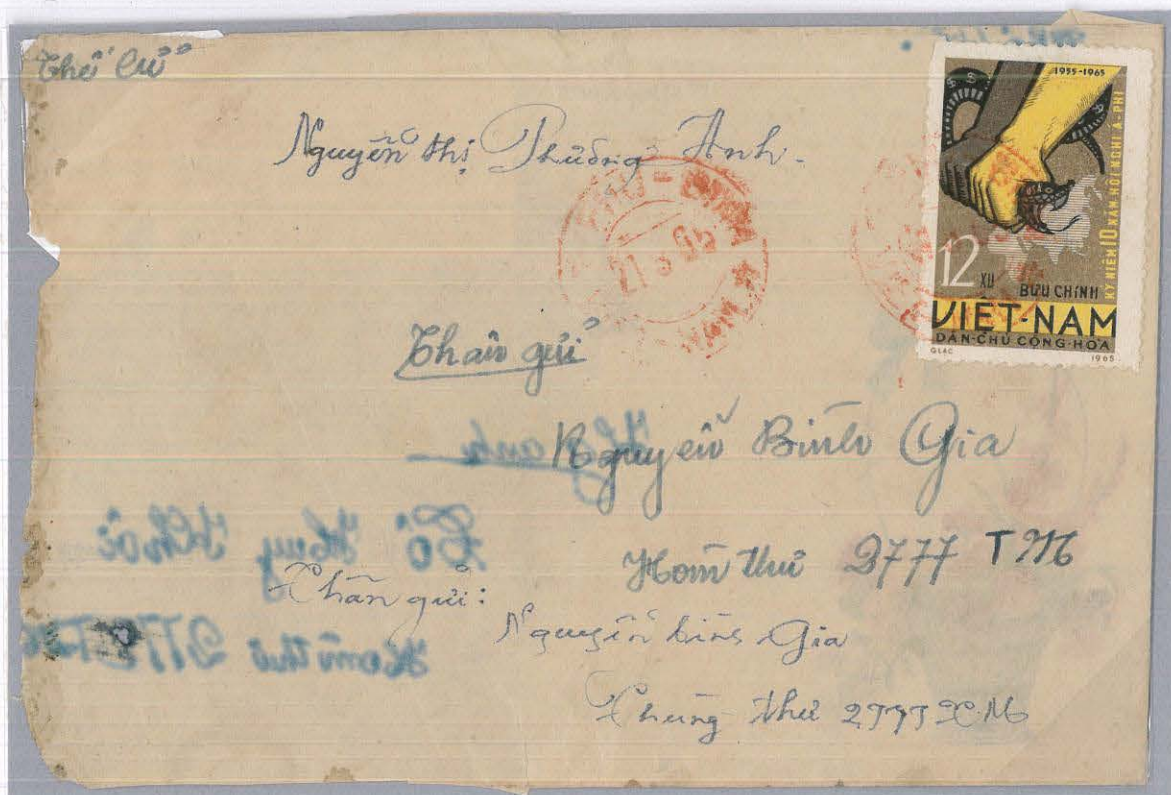 Thế Cử
Nguyễn thị Phương Anh.
1955-1965
KỶ NIỆM 10 NĂM HỘI NGHỊ Á-PHI
12 XU
BƯU CHÍNH
VIỆT-NAM
DÂN-CHỦ CỘNG-HÒA
1965
21 3 65
NAM
Thân gửi
Nguyễn Bình Gia
Hòm thư 2777 TM
Thân gửi:
Nguyễn bình Gia
Thùng thư 2777 T.M